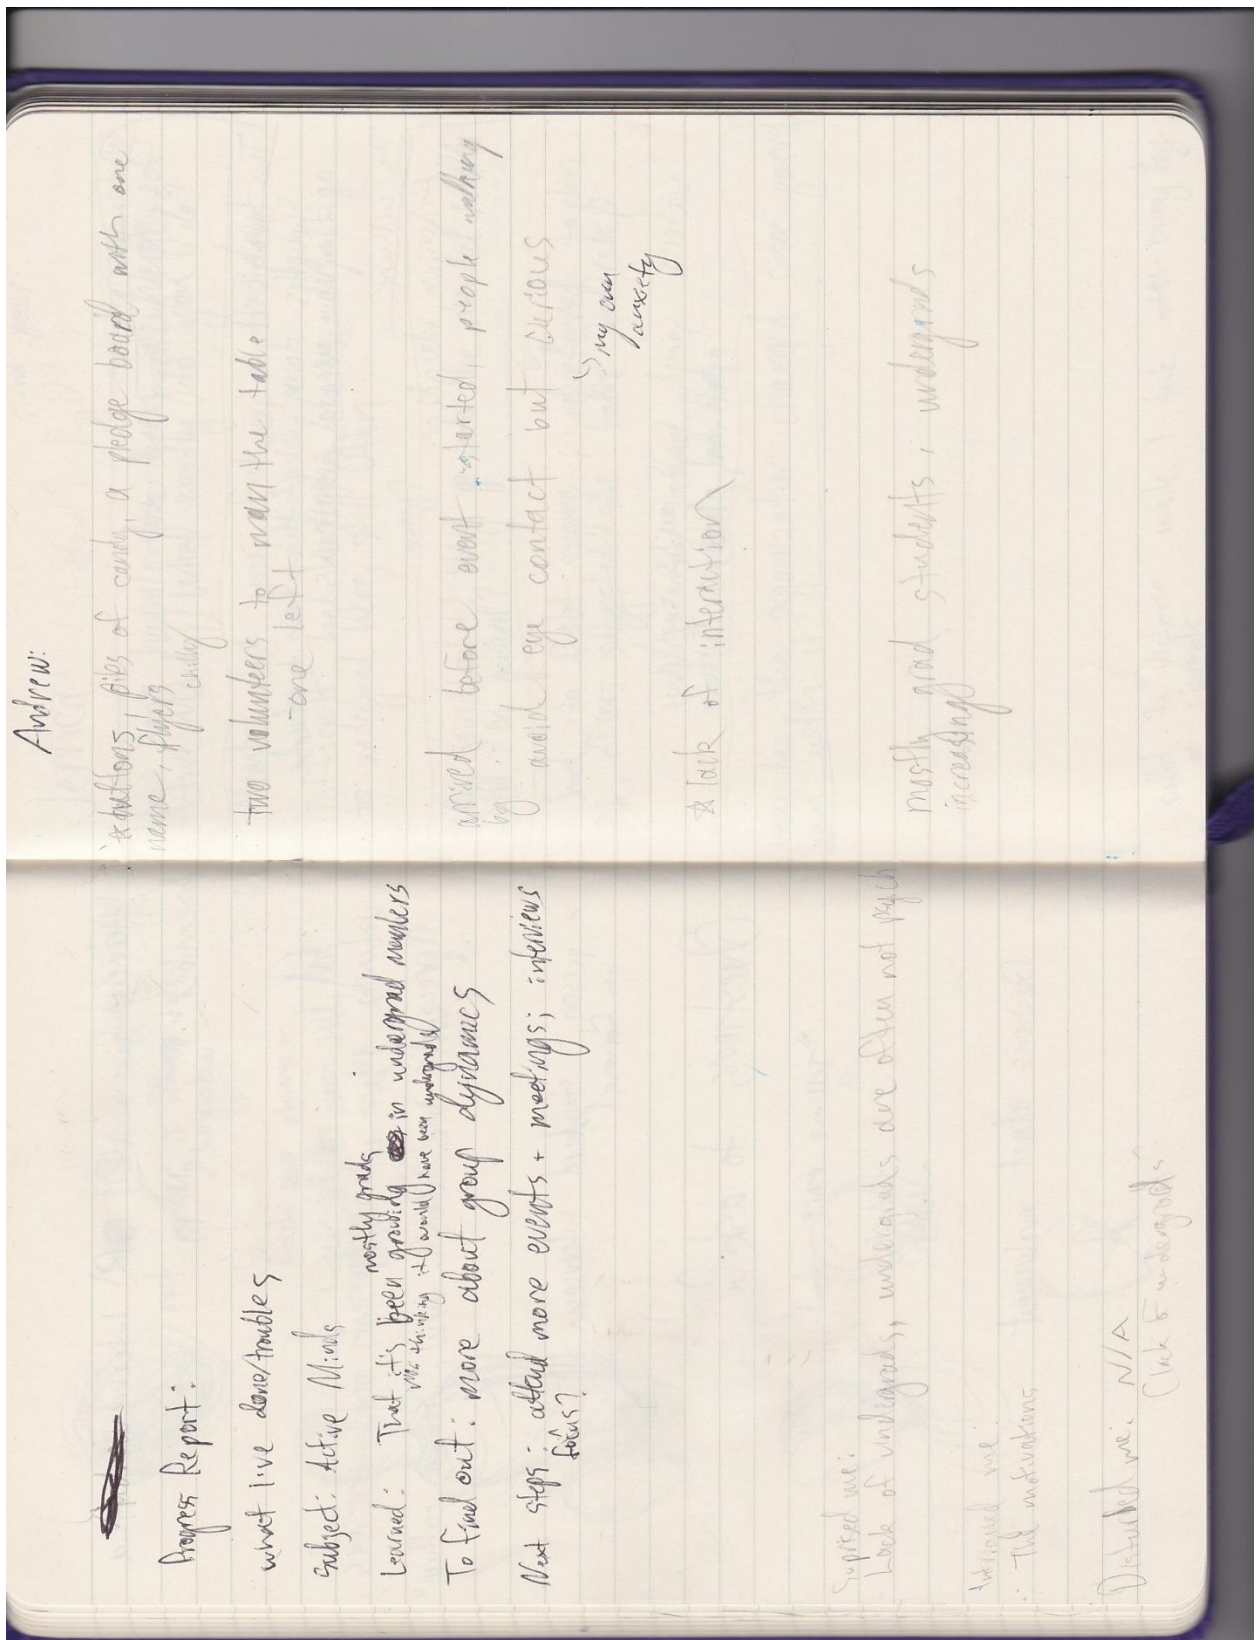 Progress Report:
what I've done/troubles
Subject: Active Minds
mostly grads
Learned: That it's been growing in undergrad members
was thinking it would have been undergrads
To find out: more about group dynamics
Next steps: attend more events + meetings; interviews
focus?
Suprised me:
Lack of undergrads, undergrads are often not psych
Intrigued me
: The motivations
Disturbed me: N/A
(lack of undergrads
Andrew:
*buttons, piles of candy, a pledge board with one
name, flyers
chilly
two volunteers to man the table
-one left
arrived before event started, people walking
by
avoid eye contact but curious
my own
anxiety
* lack of interaction
mostly grad students, undergrads
increasing